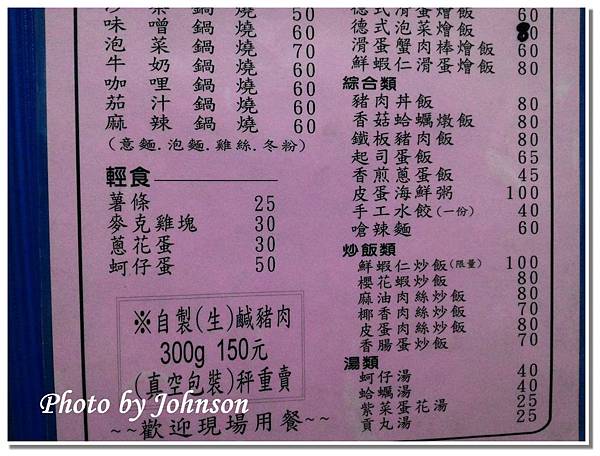 味噌鍋燒 50
泡菜鍋燒 70
牛奶鍋燒 60
咖哩鍋燒 60
茄汁鍋燒 60
麻辣鍋燒 60
(意麵.泡麵.雞絲.冬粉)
輕食
薯條 25
麥克雞塊 30
蔥花蛋 30
蚵仔蛋 50
※自製(生)鹹豬肉
300g 150元
(真空包裝)秤重賣
~~歡迎現場用餐~~
德式滑蛋燴飯 60
德式泡菜燴飯
滑蛋蟹肉棒燴飯 60
鮮蝦仁滑蛋燴飯 80
綜合類
豬肉丼飯 80
香菇蛤蠣燉飯 80
鐵板豬肉飯 80
起司蛋飯 65
香煎蔥蛋飯 45
皮蛋海鮮粥 100
手工水餃(一份) 40
嗆辣麵 60
炒飯類
鮮蝦仁炒飯(限量) 100
櫻花蝦炒飯 80
麻油肉絲炒飯 80
椰香肉絲炒飯 70
皮蛋肉絲炒飯 80
香腸蛋炒飯 70
湯類
蚵仔湯 40
蛤蠣湯 40
紫菜蛋花湯 25
貢丸湯 25
Photo by Johnson